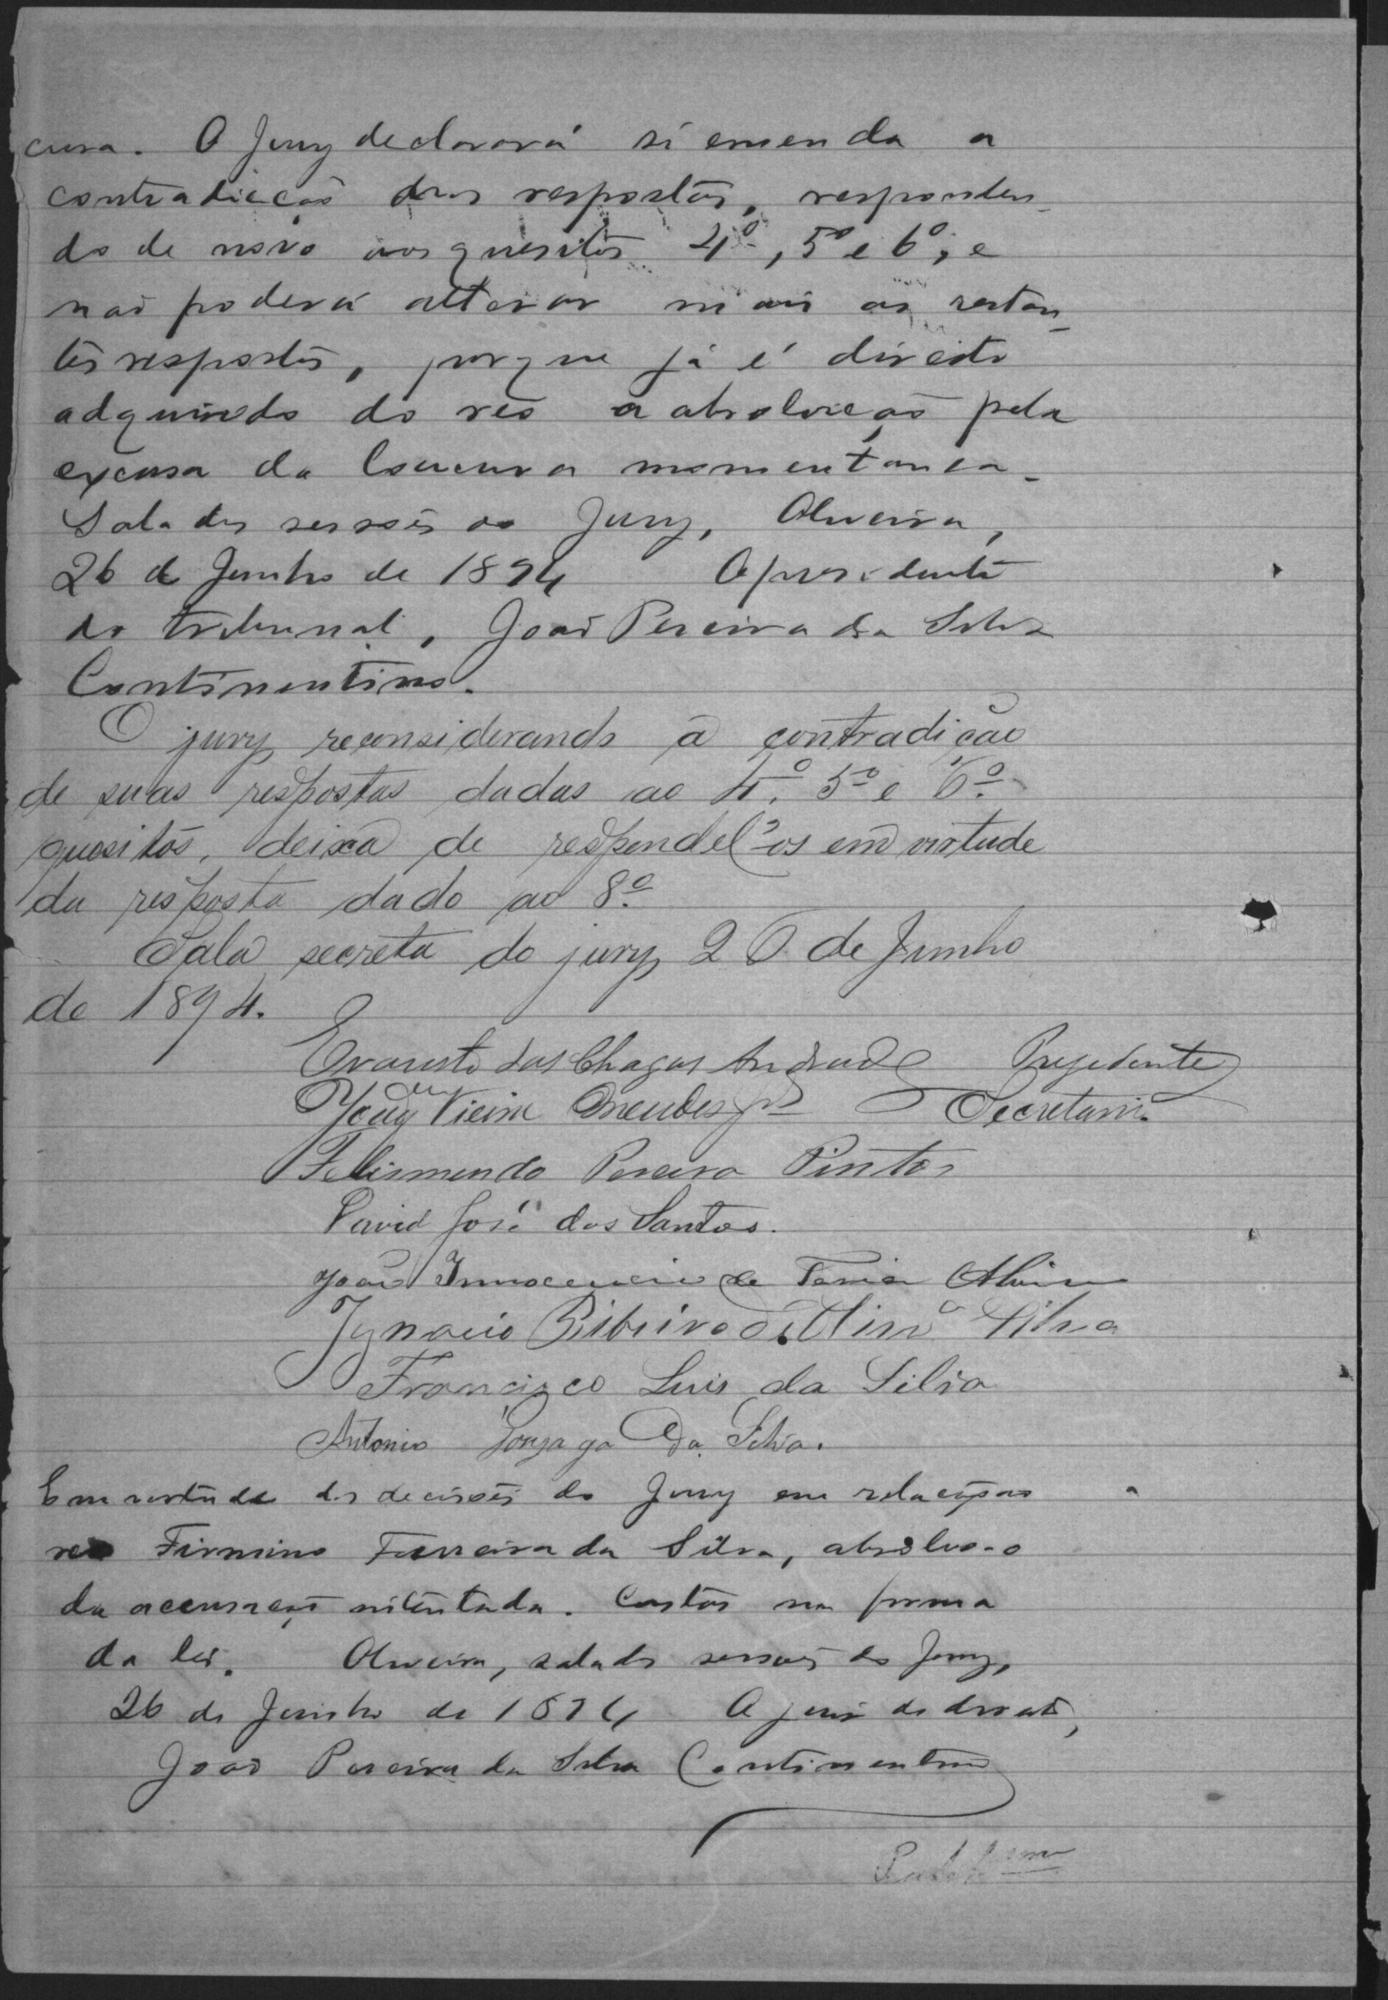 cura. O Jury declarará si emenda a
contradicção das respostas, responden-
do de novo aos quesitos 4º, 5º e 6º; e
não poderá alterar mais as restan-
tes respostas, porque já é direito
adquirido do réo a absolvição pela
excusa da loucura momentanea.
Sala das sessões do Jury, Oliveira,
26 de Junho de 1894 O presidente
do tribunal, João Pereira da Silva
Continentino.
O jury reconsiderando a contradição
de suas respostas dadas ao 4º. 5º e 6º
quesitos, deixa de respondel-os em virtude
da resposta dado ao 8º
Sala secreta do jury 26 de Junho
de 1894.
Evaristo das Chagas Andrade Presidente
Vieira Mendes Jor Secretario
Felismindo Pereira Pinto
David José dos Santos.
João Innocencio de Faria Alvim
Ignacio Ribeiro de Silva
Francisco Luis da Silva
Antonio Gonzaga Da Silva.
Em virtude das decisões do Jury em relação ao
reo Firmino Ferreira da Silva, absolvo-o
da accusação intentada. Custas na forma
da lei. Oliveira, sala das sessões do Jury,
26 de Junho de 1894 O juiz de direito,
João Pereira da Silva Continentino